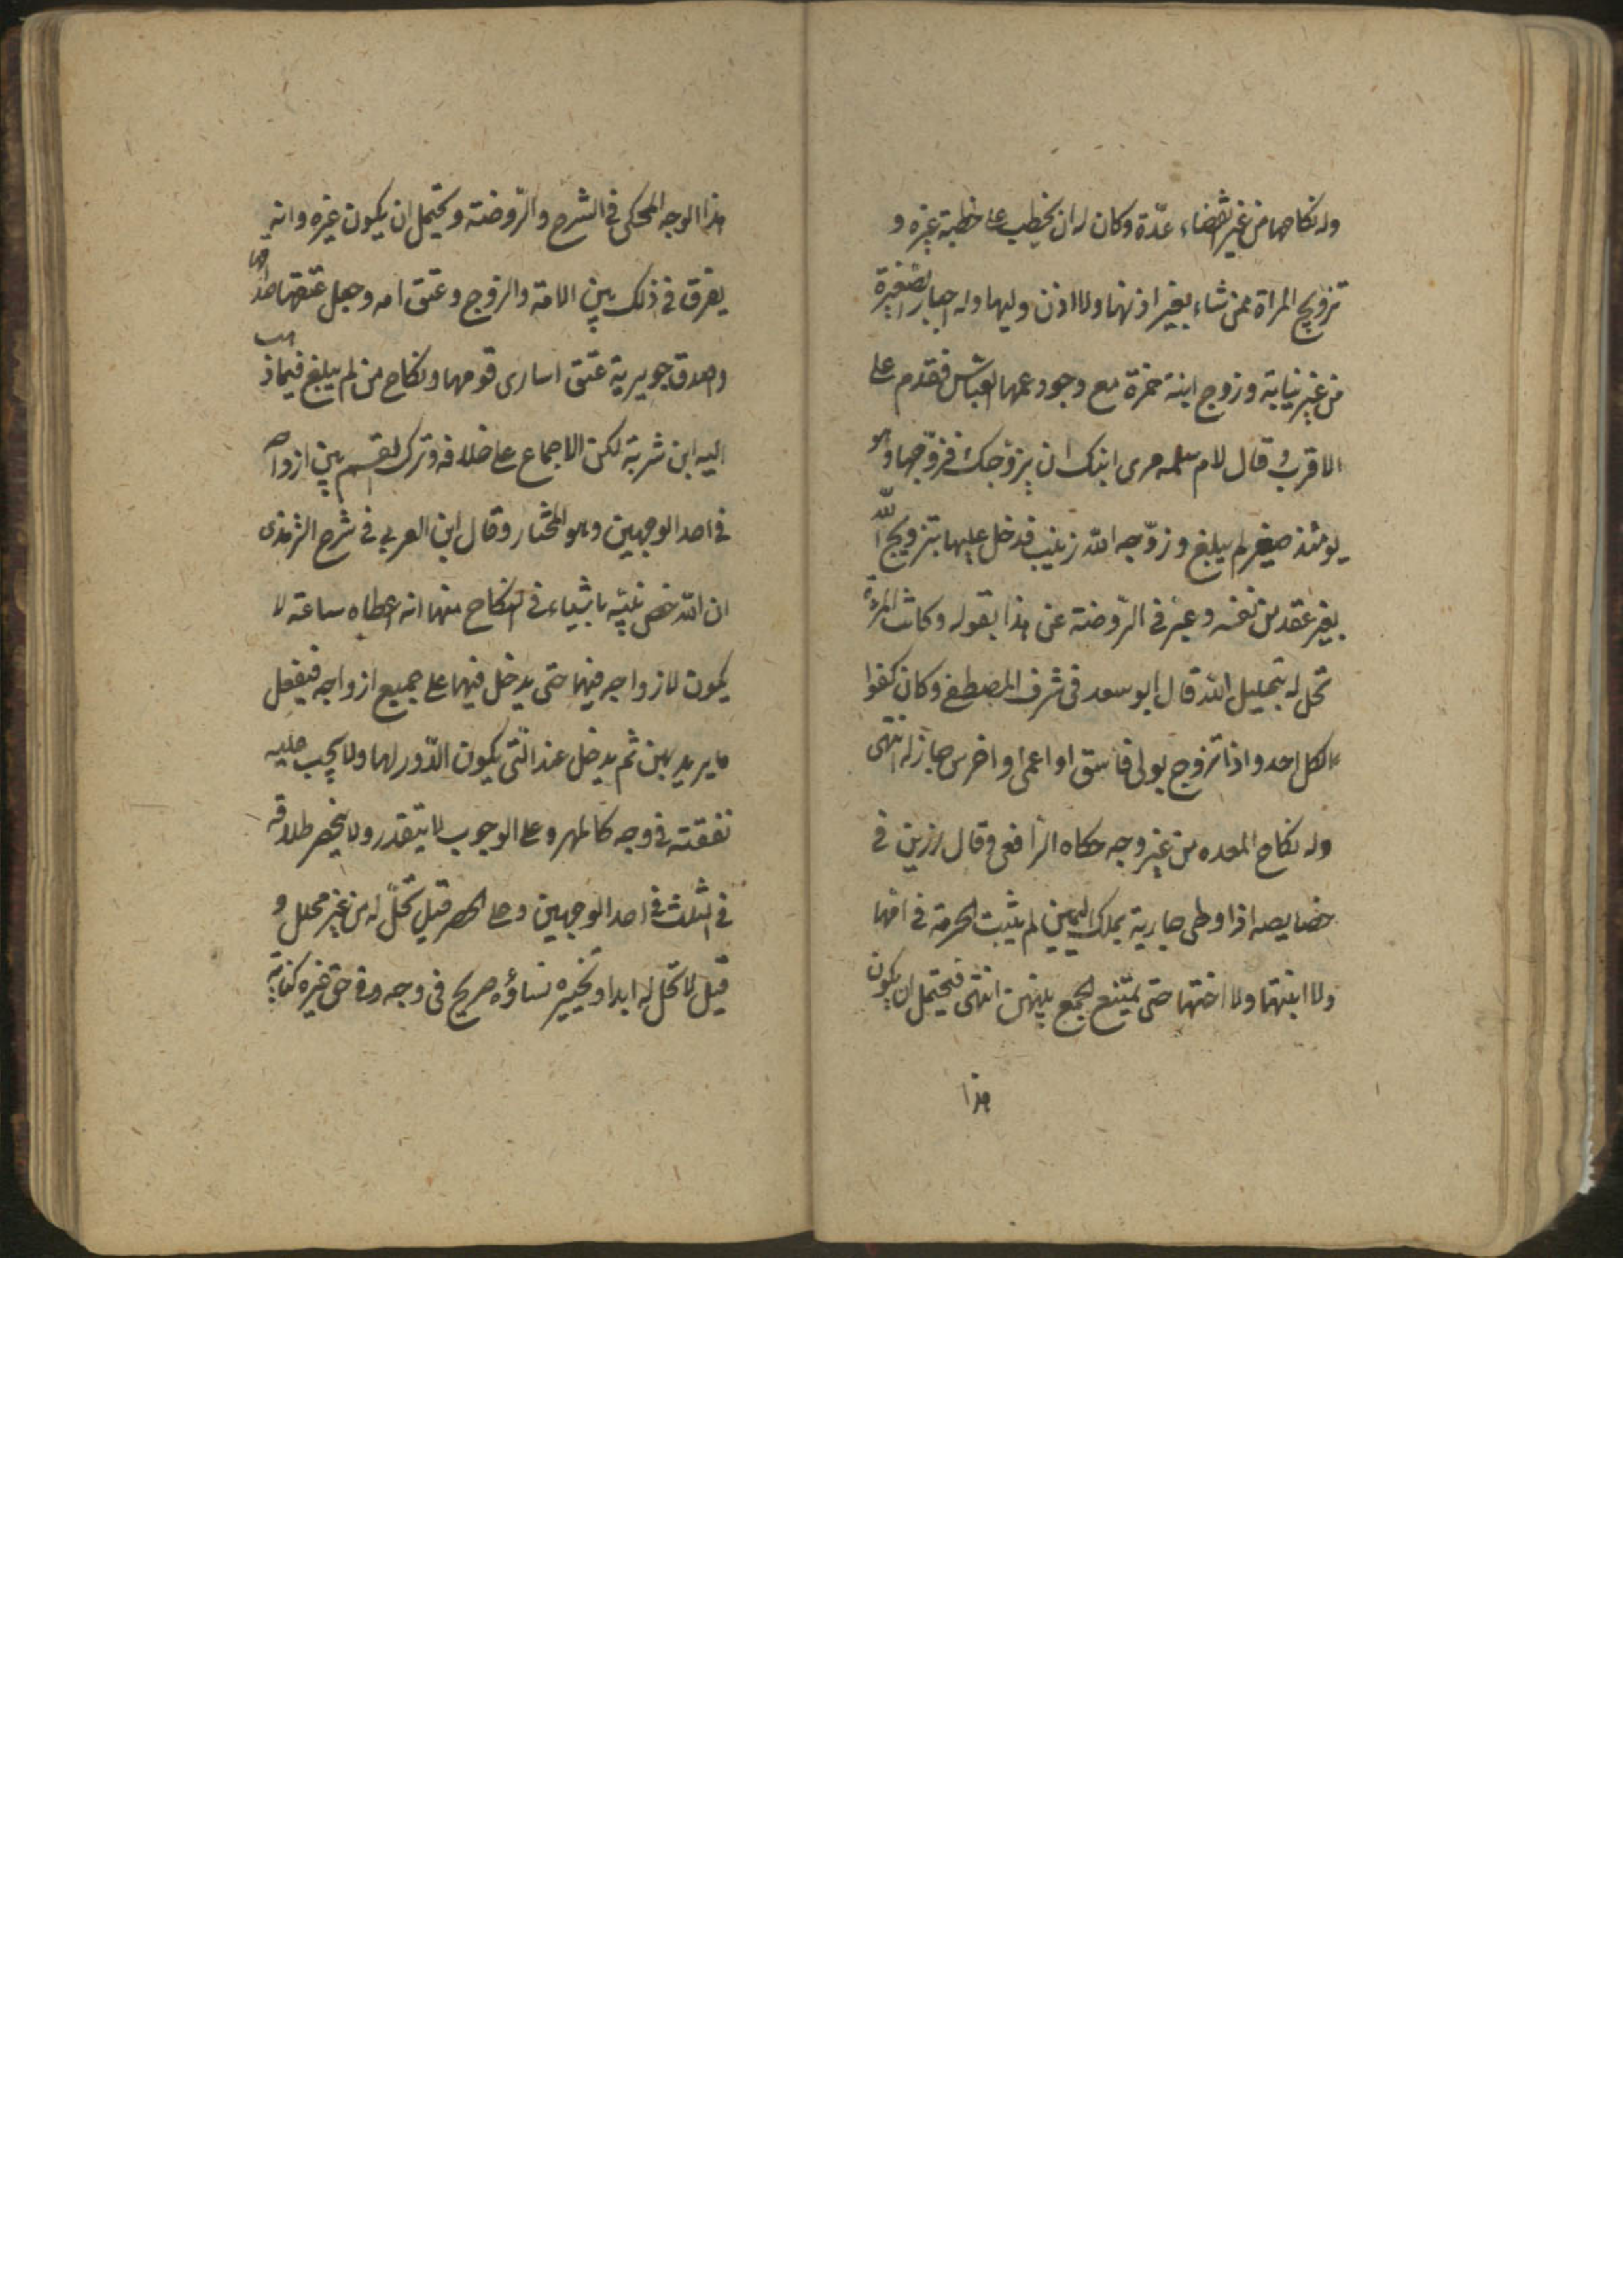 وله نكاحها من غير انقضاء عدّة وكان له ان يخطب على خطبة غيره و
تزويج المراة ممن شاء بغير اذنها ولا اذن وليها وله اجبار الصّغيرة
من غير نيابة وزوج ابنة حمزة مع وجود عمها العباس فقدم على
الاقرب وقال لام سلمه مرى ابنك ان يزوجك فزوّجها وهو
يومئذ صغير لم يبلغ وزوّجه الله زينب فدخل عليها بتزويج الله
بغير عقد من نفسه وعبر في الرّوضة عن هذا بقوله وكانت المرءة
تحل له بتحليل الله قال ابو سعد فى شرف المصطفى وكان كفوا
لكل احد واذا تزوج بولى فاسق او اعمى او اخرس جاز له انتهى
وله نكاح المعده من غير وجه حكاه الرافعى وقال رزين فى
خصايصه اذا وطى جارية بملك اليمين لم يثبت الحرمة فى امها
ولا ابنتها ولا اختها حتى يمتنع الجمع بينهن انتهى فيحتمل ان يكون
هذا
هذا الوجه المحكى فى الشرح والرّوضة ويحتمل ان يكون غيره وانه
يفرق فى ذلك بين الامة والزوج وعتق امه وجعل عتقها صداقها
واصدق جويرية عتق اسارى قومها ونكاح من لم يبلغ فيما ذهب
اليه ابن شربة لكن الاجماع على خلافه وترك القسم بين ازواجه
فى احد الوجهين وهو المختار وقال ابن العربي فى شرح الترمذى
ان الله خص نبيّه باشياء فى النكاح منها انه اعطاه ساعة لا
يكون لازواجه فيها حتى يدخل فيها على جميع ازواجه فيفعل
ما يريد بهن ثم يدخل عند الّتى يكون الدّور لها ولا يجب عليه
نفقته فى وجه كالمهر وعلى الوجوب لا يتقدر ولا ينحصر طلاقه
فى الثلث فى احد الوجهين وعلى الحصر قيل تحلّ له من غير محلل و
قيل لا تحل له ابدا وتخييره نساؤه صريح فى وجه وفى حق غيره كناية